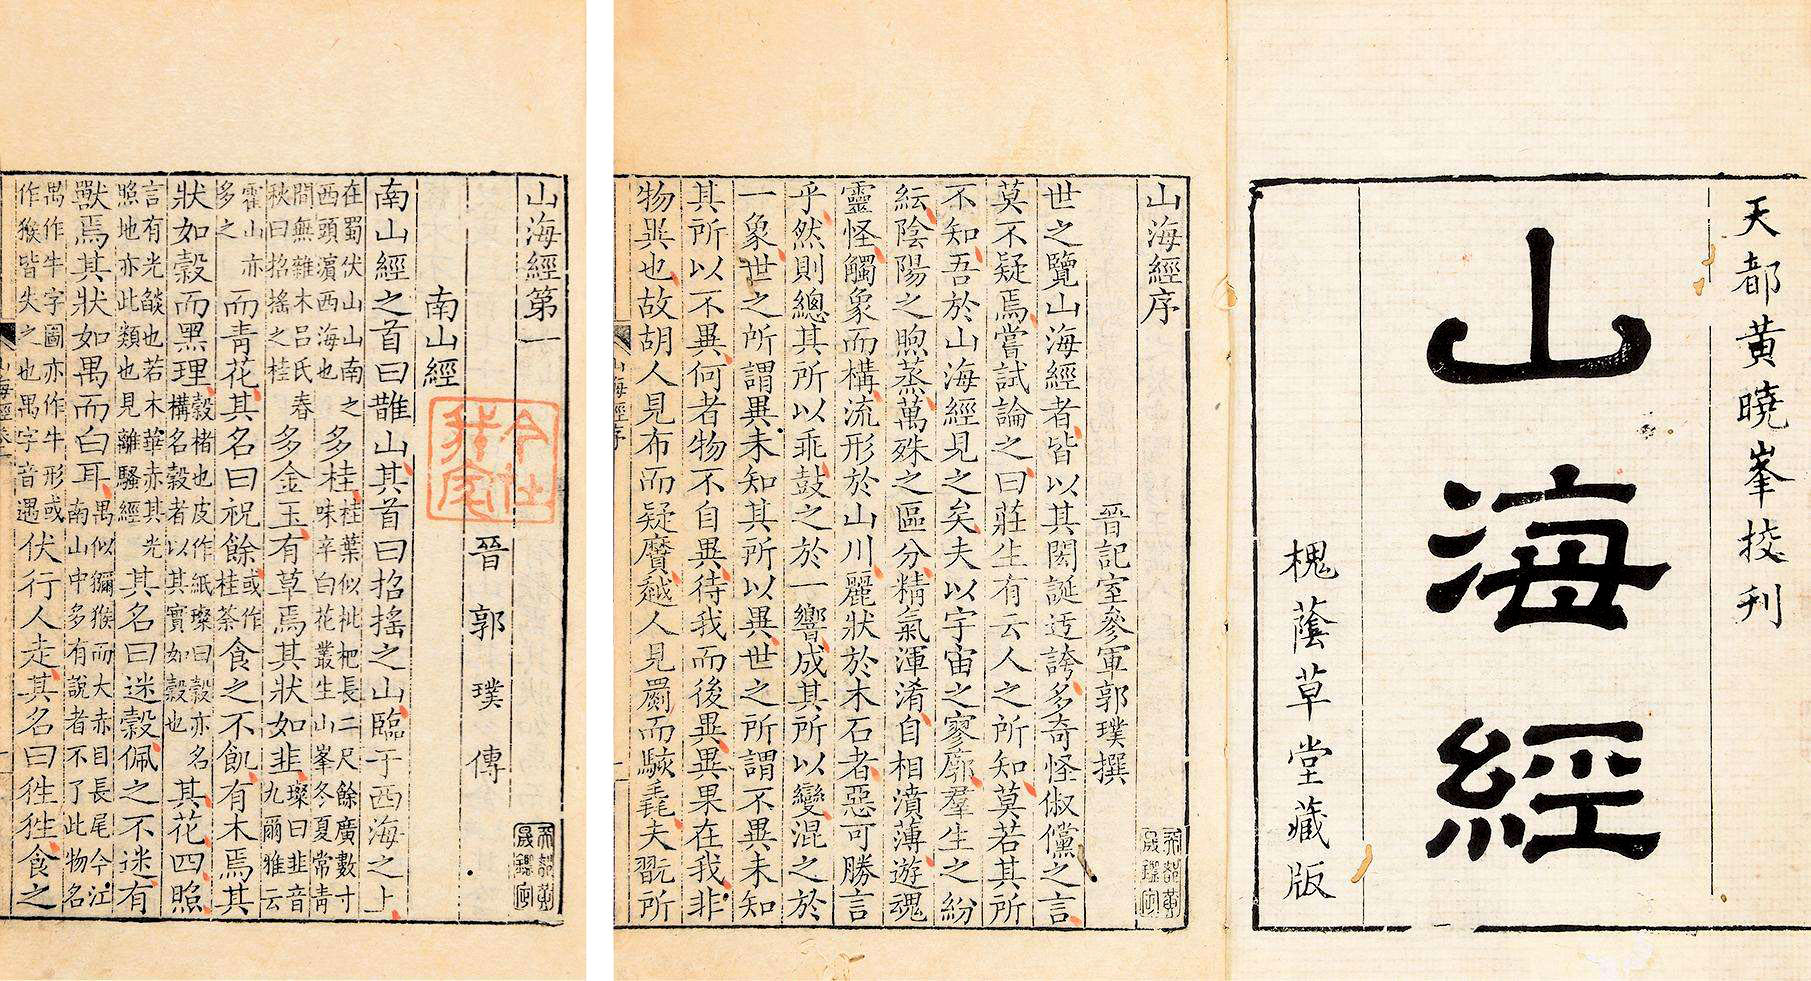 天都黄曉峯挍刋
山海經
槐蔭草堂藏版
山海經序
天都黄晟鑑定
晉記室參軍郭璞撰
世之覽山海經者皆以其閎誕迃誇多奇怪俶儻之言
莫不疑焉嘗試論之曰莊生有云人之所知莫若其所
不知吾於山海經見之矣夫以宇宙之寥廓羣生之紛
紜陰陽之煦蒸萬殊之區分精氣渾淆自相濆薄遊魂
靈怪觸象而構流形於山川麗狀於木石者惡可勝言
乎然則總其所以乖鼓之於一響成其所以變混之於
一象世之所謂異未知其所以異世之所謂不異未知
其所以不異何者物不自異待我而後異異果在我非
物異也故胡人見布而疑黂越人見罽而駭毳夫翫所
山海經序
山海經第一
天都黄晟鑑定
晉郭璞傳
南山經
南山經之首曰䧿山其首曰招搖之山臨于西海之上
在蜀伏山山南之西頭濱西海也多桂桂葉似枇杷長二尺餘廣數寸味辛白花叢生山峯冬夏常靑
間無雜木呂氏春秋曰招搖之桂多金玉有草焉其狀如韭璨曰韭音九爾雅云
霍山亦多之而靑花其名曰祝餘或作桂荼食之不飢有木焉其
狀如榖而黑理榖楮也皮作紙璨曰榖亦名構名榖者以其實如榖也其花四照
言有光㷔也若木華赤其光照地亦此類也見離騷經其名曰迷榖佩之不迷有
獸焉其狀如禺而白耳禺似獼猴而大赤目長尾今江南山中多有說者不了此物名
禺作牛字圖亦作牛形或作猴皆失之也禺字音遇伏行人走其名曰狌狌食之